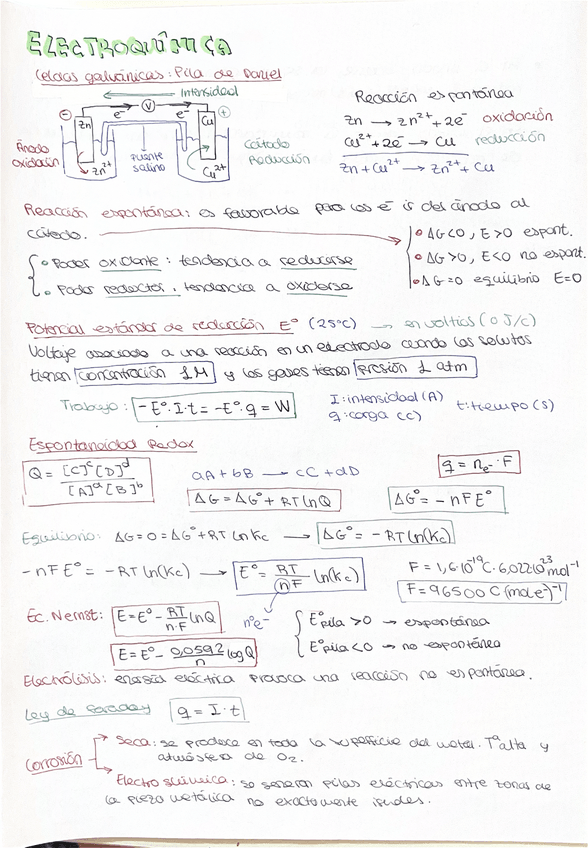 ELECTROQUÍMICA
Celdas galvánicas: Pila de Daniel
Intensidad
⊖ e⁻ V e⁻ ⊕
Zn Cu
Ánodo
oxidación
Zn²⁺
Puente
salino
Cu²⁺
Cátodo
Reducción
Reacción espontánea
Zn → Zn²⁺ + 2e⁻ oxidación
Cu²⁺ + 2e⁻ → Cu reducción
Zn + Cu²⁺ → Zn²⁺ + Cu
Reacción espontánea: es favorable para los e⁻ ir del ánodo al
cátodo.
• ΔG<0, E>0 espont.
• ΔG>0, E<0 no espont.
• ΔG=0 equilibrio E=0
• Poder oxidante: tendencia a reducirse
• Poder reductor, tendencia a oxidarse
Potencial estándar de reducción E° (25°C) → en voltios (o J/C)
Voltaje asociado a una reacción en un electrodo cuando los solutos
tienen concentración 1M y los gases tienen presión 1 atm
Trabajo: -E°·I·t = -E°·q = W
I: intensidad (A)
q: carga (C)
t: tiempo (s)
Espontaneidad Redox
Q = [C]ᶜ[D]ᵈ / [A]ᵃ[B]ᵇ
aA + bB → cC + dD
q = nₑ₋·F
ΔG = ΔG° + RT ln Q
ΔG° = -nFE°
Equilibrio: ΔG = 0 = ΔG° + RT ln Kc → ΔG° = -RT ln(Kc)
-nFE° = -RT ln(Kc) → E° = RT/nF ln(Kc)
nºe⁻
F = 1,6·10⁻¹⁹C·6,022·10²³mol⁻¹
F = 96500 C(mol e⁻)⁻¹
Ec. Nernst: E = E° - RT/n·F ln Q
E = E° - 0,0592/n log Q
E°pila > 0 → espontánea
E°pila < 0 → no espontánea
Electrólisis: energía eléctrica provoca una reacción no espontánea.
Ley de Faraday q = I·t
Corrosión
Seca: se produce en toda la superficie del metal. Tª alta y
atmósfera de O₂.
Electroquímica: se generan pilas eléctricas entre zonas de
la pieza metálica no exactamente iguales.